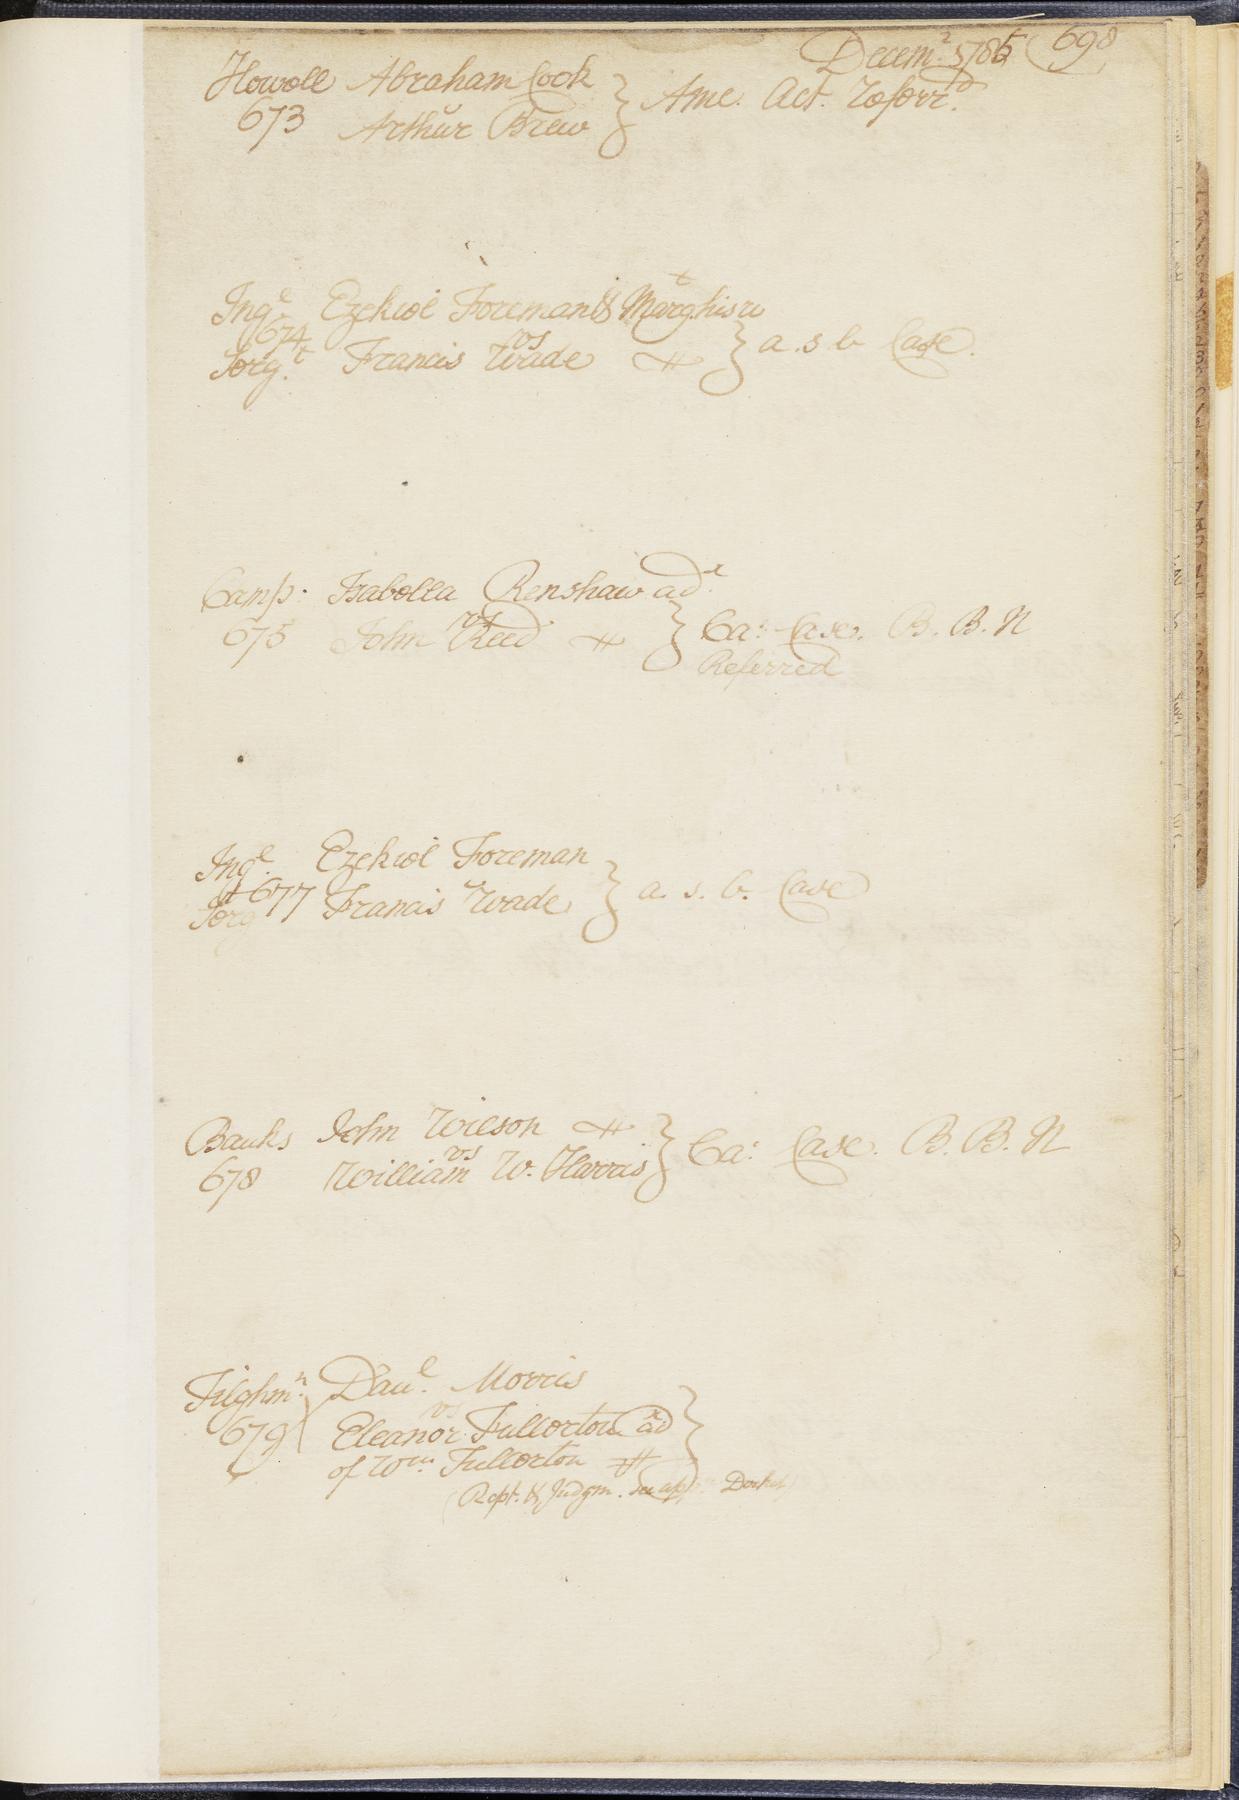 Decem.r 1785 (698
Howell Abraham Cook } Ame. Act. Referr.d
673 Arthur Brew
Ing.l Ezekiel Foreman & Marg.t his w
674 vs } a. s b Case.
Serg.t Francis Wade #
Camp. Isabella Renshaw ad.x
vs } Ca: Case. B. B. N
675 John Reed #
Referred
Ing.l Ezekiel Foreman
& 677 } a. s. b. Case
Serg Francis Wade
Banks John Wilson # } Ca: Case. B. B. N
vs
678 William W. Harris
Tilghm.n Dan.l Morris
vs
679 Eleanor Fullerton ad.x }
of Wm. Fullerton #
(Rept. & Judgm. See app Docket)